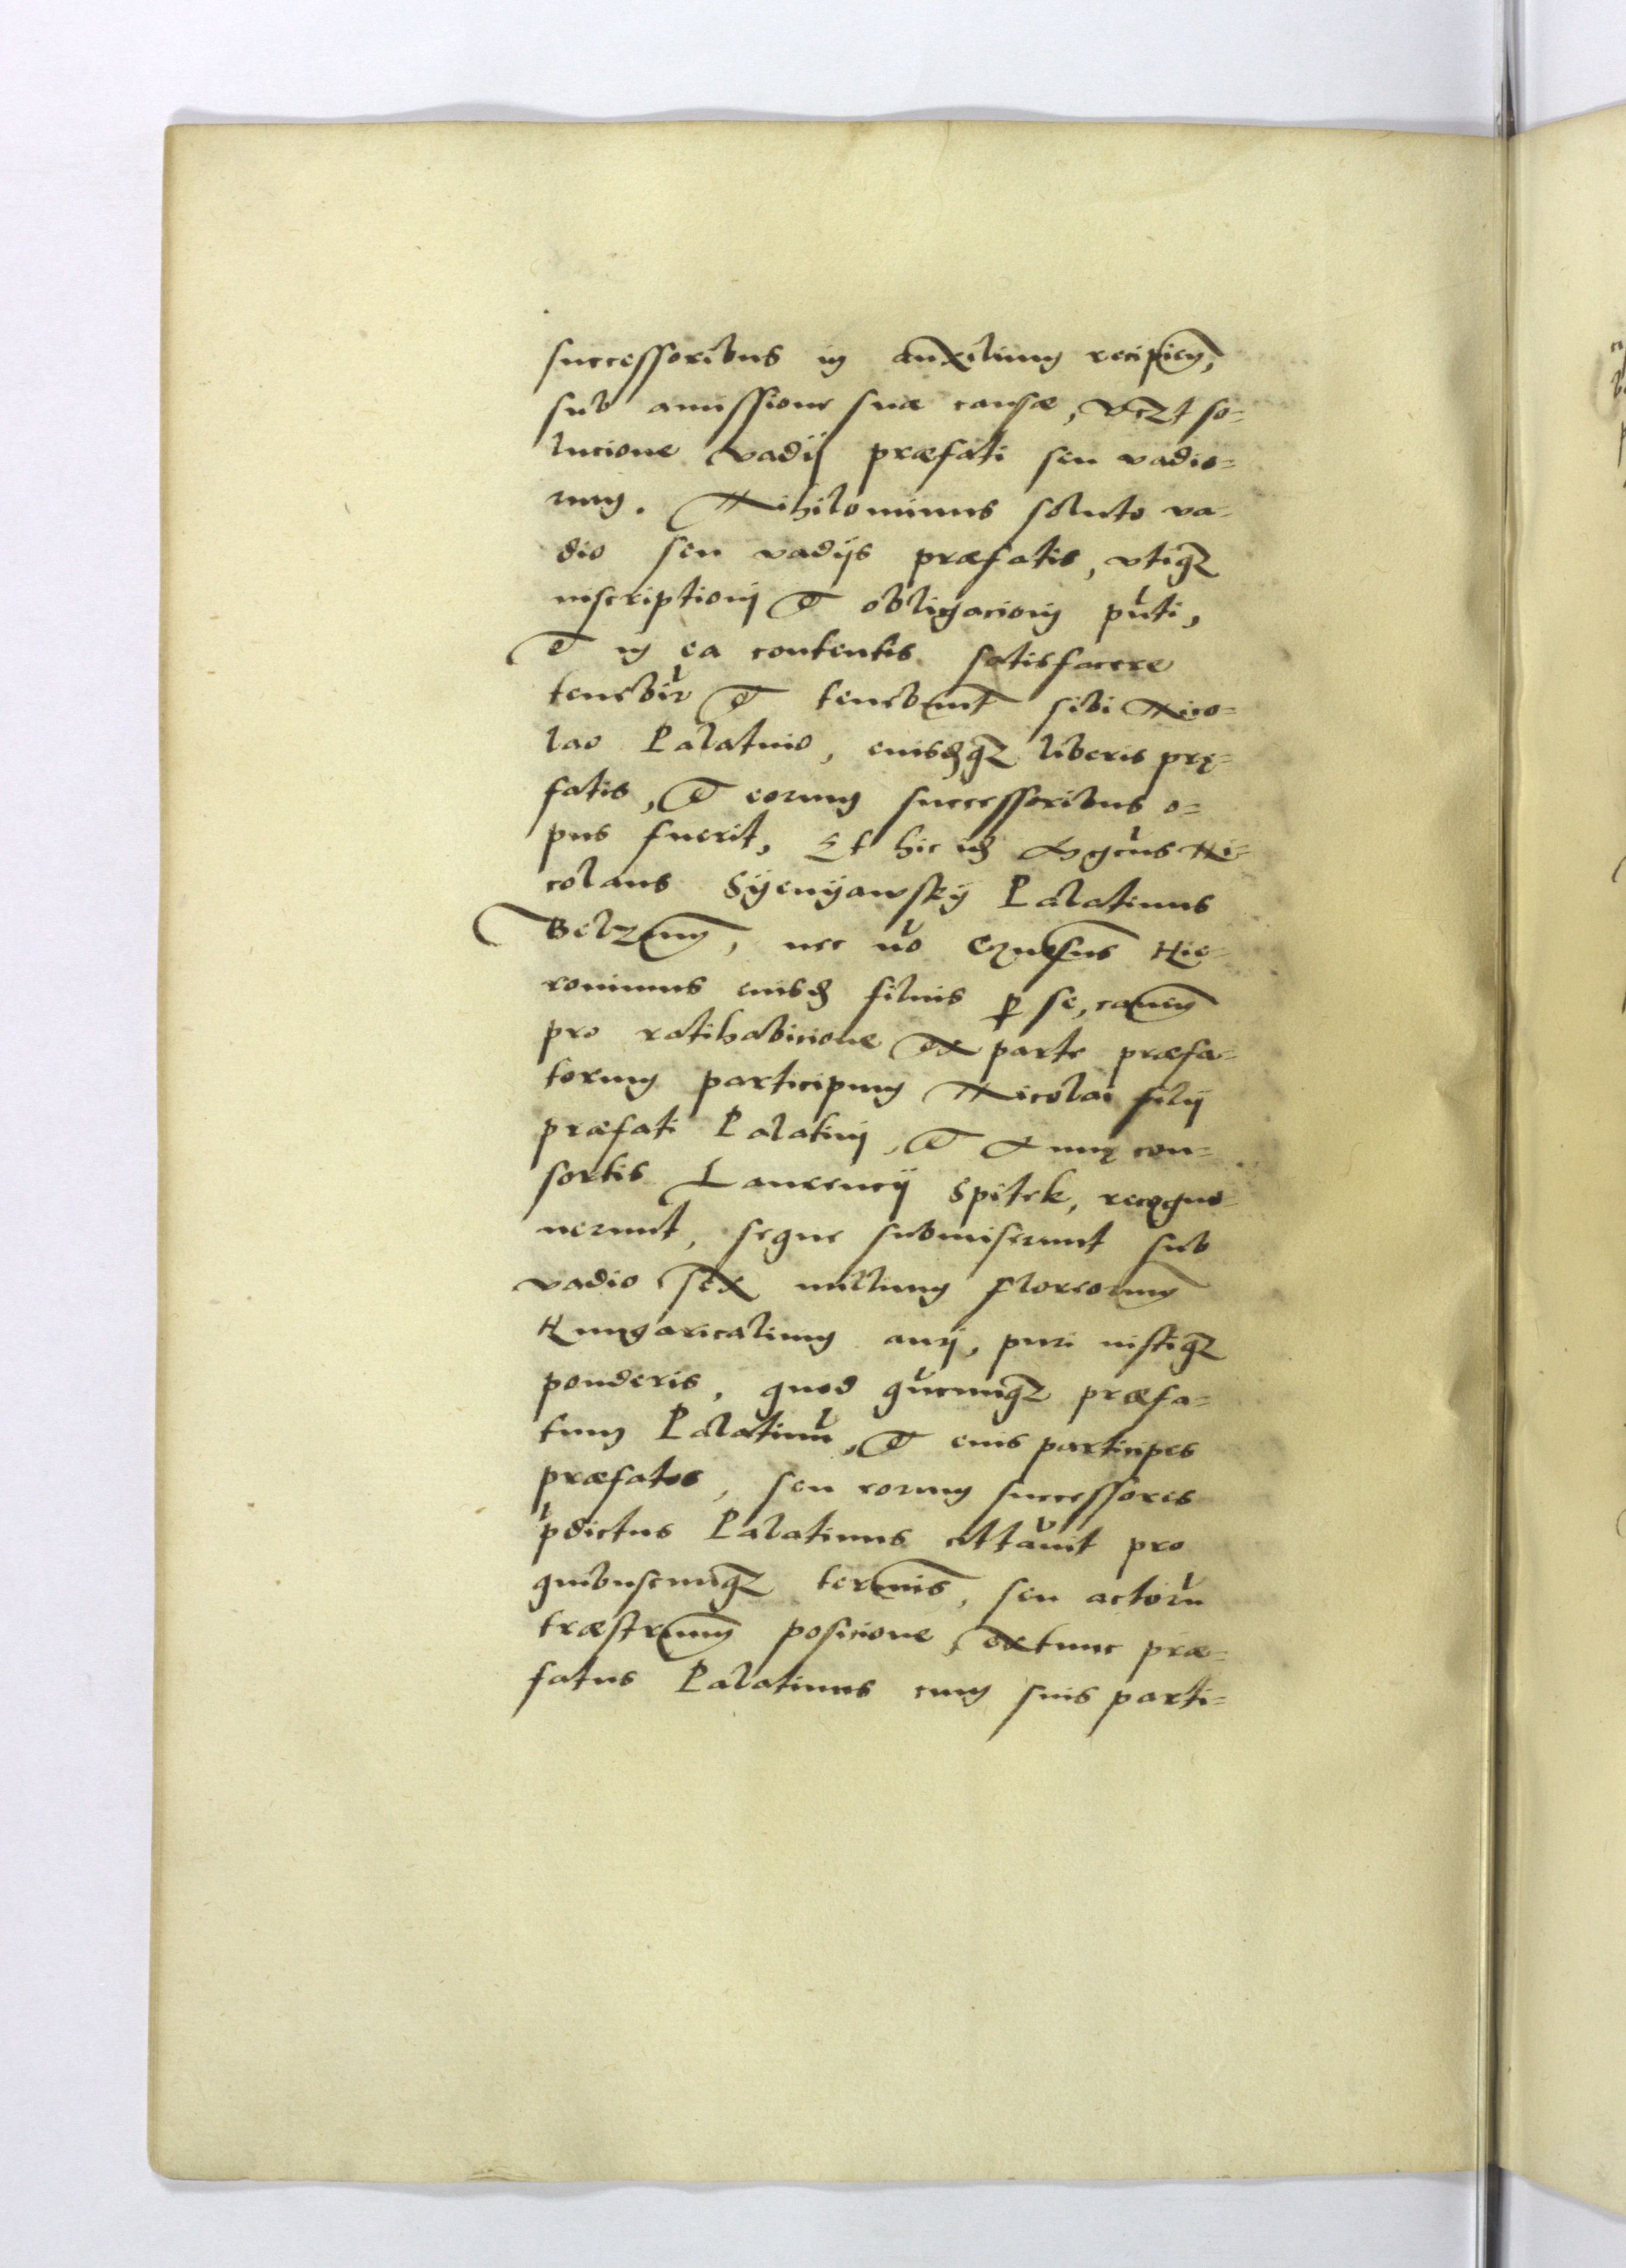 successoribus in auxilium recipien̄,
sub amissione suæ causæ, vcz̄t so=
lucione vadij præfati seu vadio=
rum. Nihilominus soluto va=
dio seu vadijs præfatis, vtiq3
inscriptioni et obligacioni pn̄ti,
et in ea contentis satisfacere
tenebit̄r et tenebunt̄ sibi Nico=
lao Palatino, eiusdq3 liberis prę=
fatis, et eorum successoribus o=
pus fuerit, Et hic id Mgcūs Ni=
colaus Syenyawsky Palatinus
Belzeñ, nec nō Generosus Hie=
ronimus eiusd filius p se, caueñ
pro ratihabicione ex parte præfa=
torum participum Nicolai filij
præfati Palatini, et Annę con=
sortis Laurencij Spitek, recogno=
uerunt, seque submiserunt sub
vadio sex millium florenorum
Hungaricalium auri, puri iustiq3
ponderis, quod qūcunq3 præfa=
tum Palatinū, et eius participes
præfatos, seu eorum successores
pdictus Palatinus cittauit pro
quibuscunq3 terminis, seu actorū
træstreñ posicione, extunc præ=
fatus Palatinus cum suis parti=